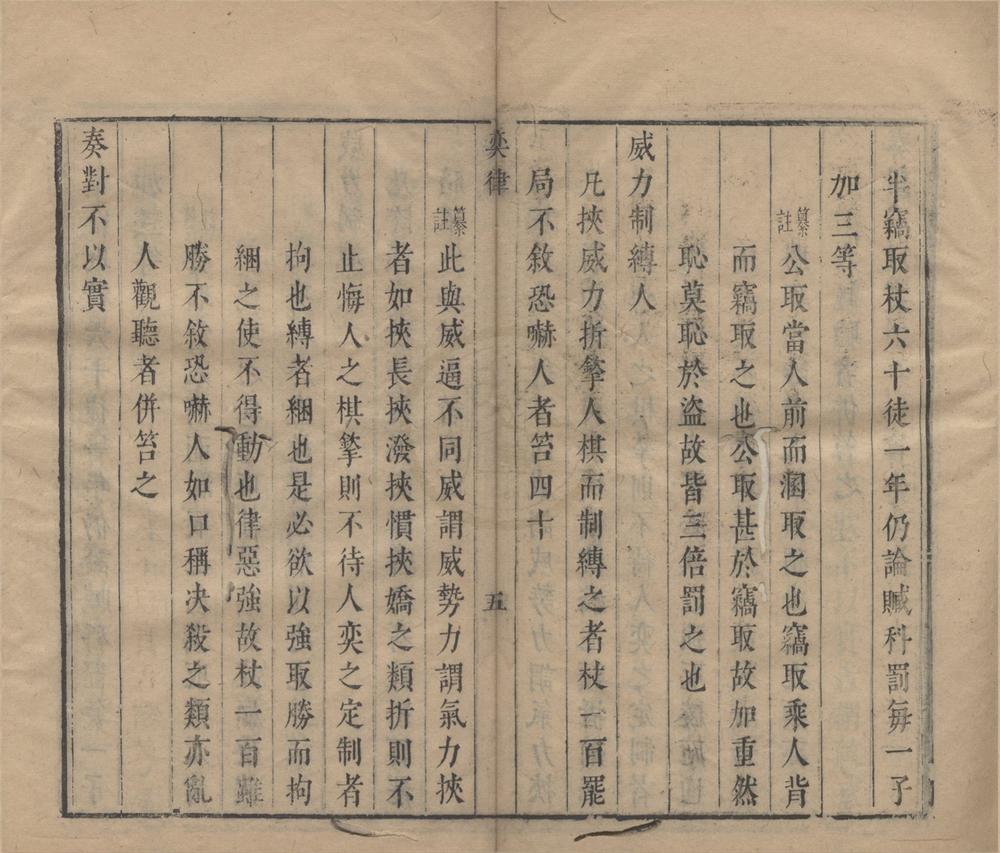 半竊取杖六十徒一年仍論贓科罰每一子
加三等
纂註公取當人前而溷取之也竊取乘人背
而竊取之也公取甚於竊取故加重然
恥莫恥於盜故皆三倍罰之也
威力制縛人
凡挾威力折拏人棋而制縛之者杖一百罷
局不敘恐嚇人者笞四十
奕律
五
纂註此與威逼不同威謂威勢力謂氣力挾
者如挾長挾潑挾慣挾嬌之類折則不
止悔人之棋拏則不待人奕之定制者
拘也縛者綑也是必欲以強取勝而拘
綑之使不得動也律惡強故杖一百雖
勝不敘恐嚇人如口稱决殺之類亦亂
人觀聽者併笞之
奏對不以實